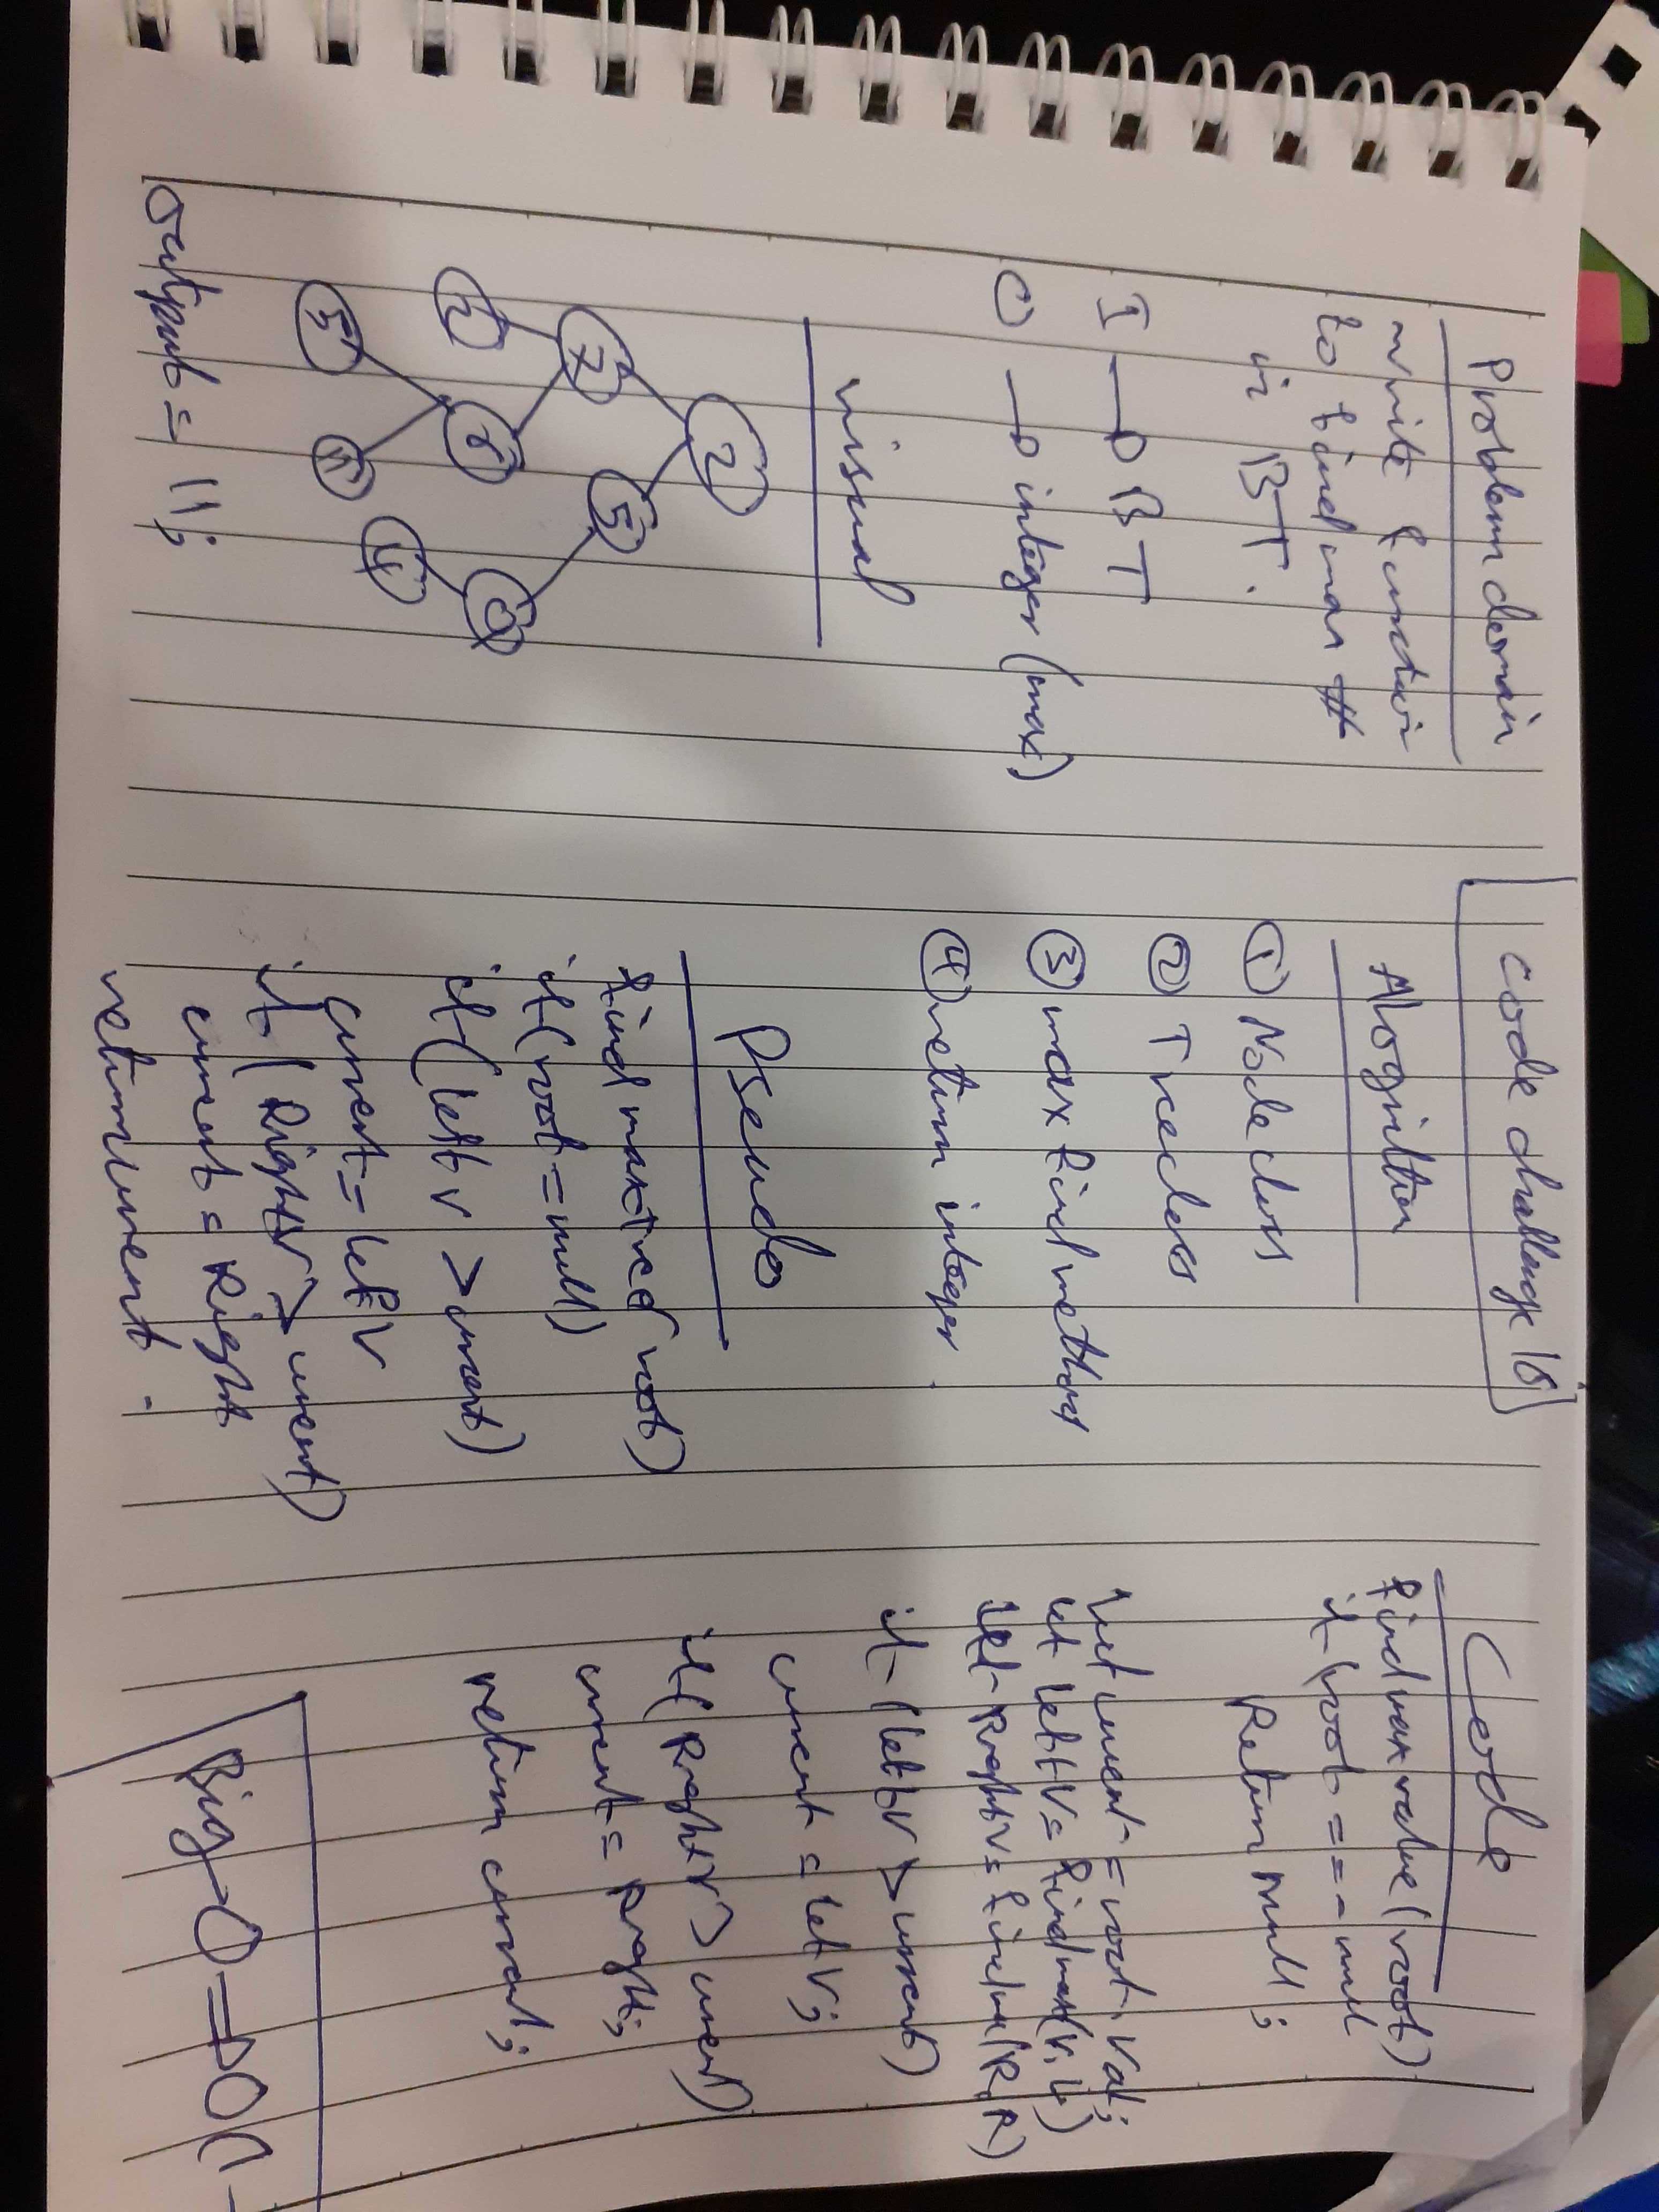 Code challenge 16
Problem domain
write function
to find max #
in BT.
I → BT
O → integer (max)
visual
2
7
5
2
6
9
5
11
4
output = 11;
Alogrithm
① Node class
② Tree class
③ max find method
④ return integer
Pseudo
find max tree(root)
if (root = null)
if (left v > current)
current = left v
if (Right v > current)
current = Right
return current.
Code
find max value (root)
if (root === null
Return null;
let current = root.val;
let left v = find max (r.L)
let Right v = find max (R.R)
if (left v > current)
current = left v;
if (Right v > current)
current = Right;
return current;
Big O => O(